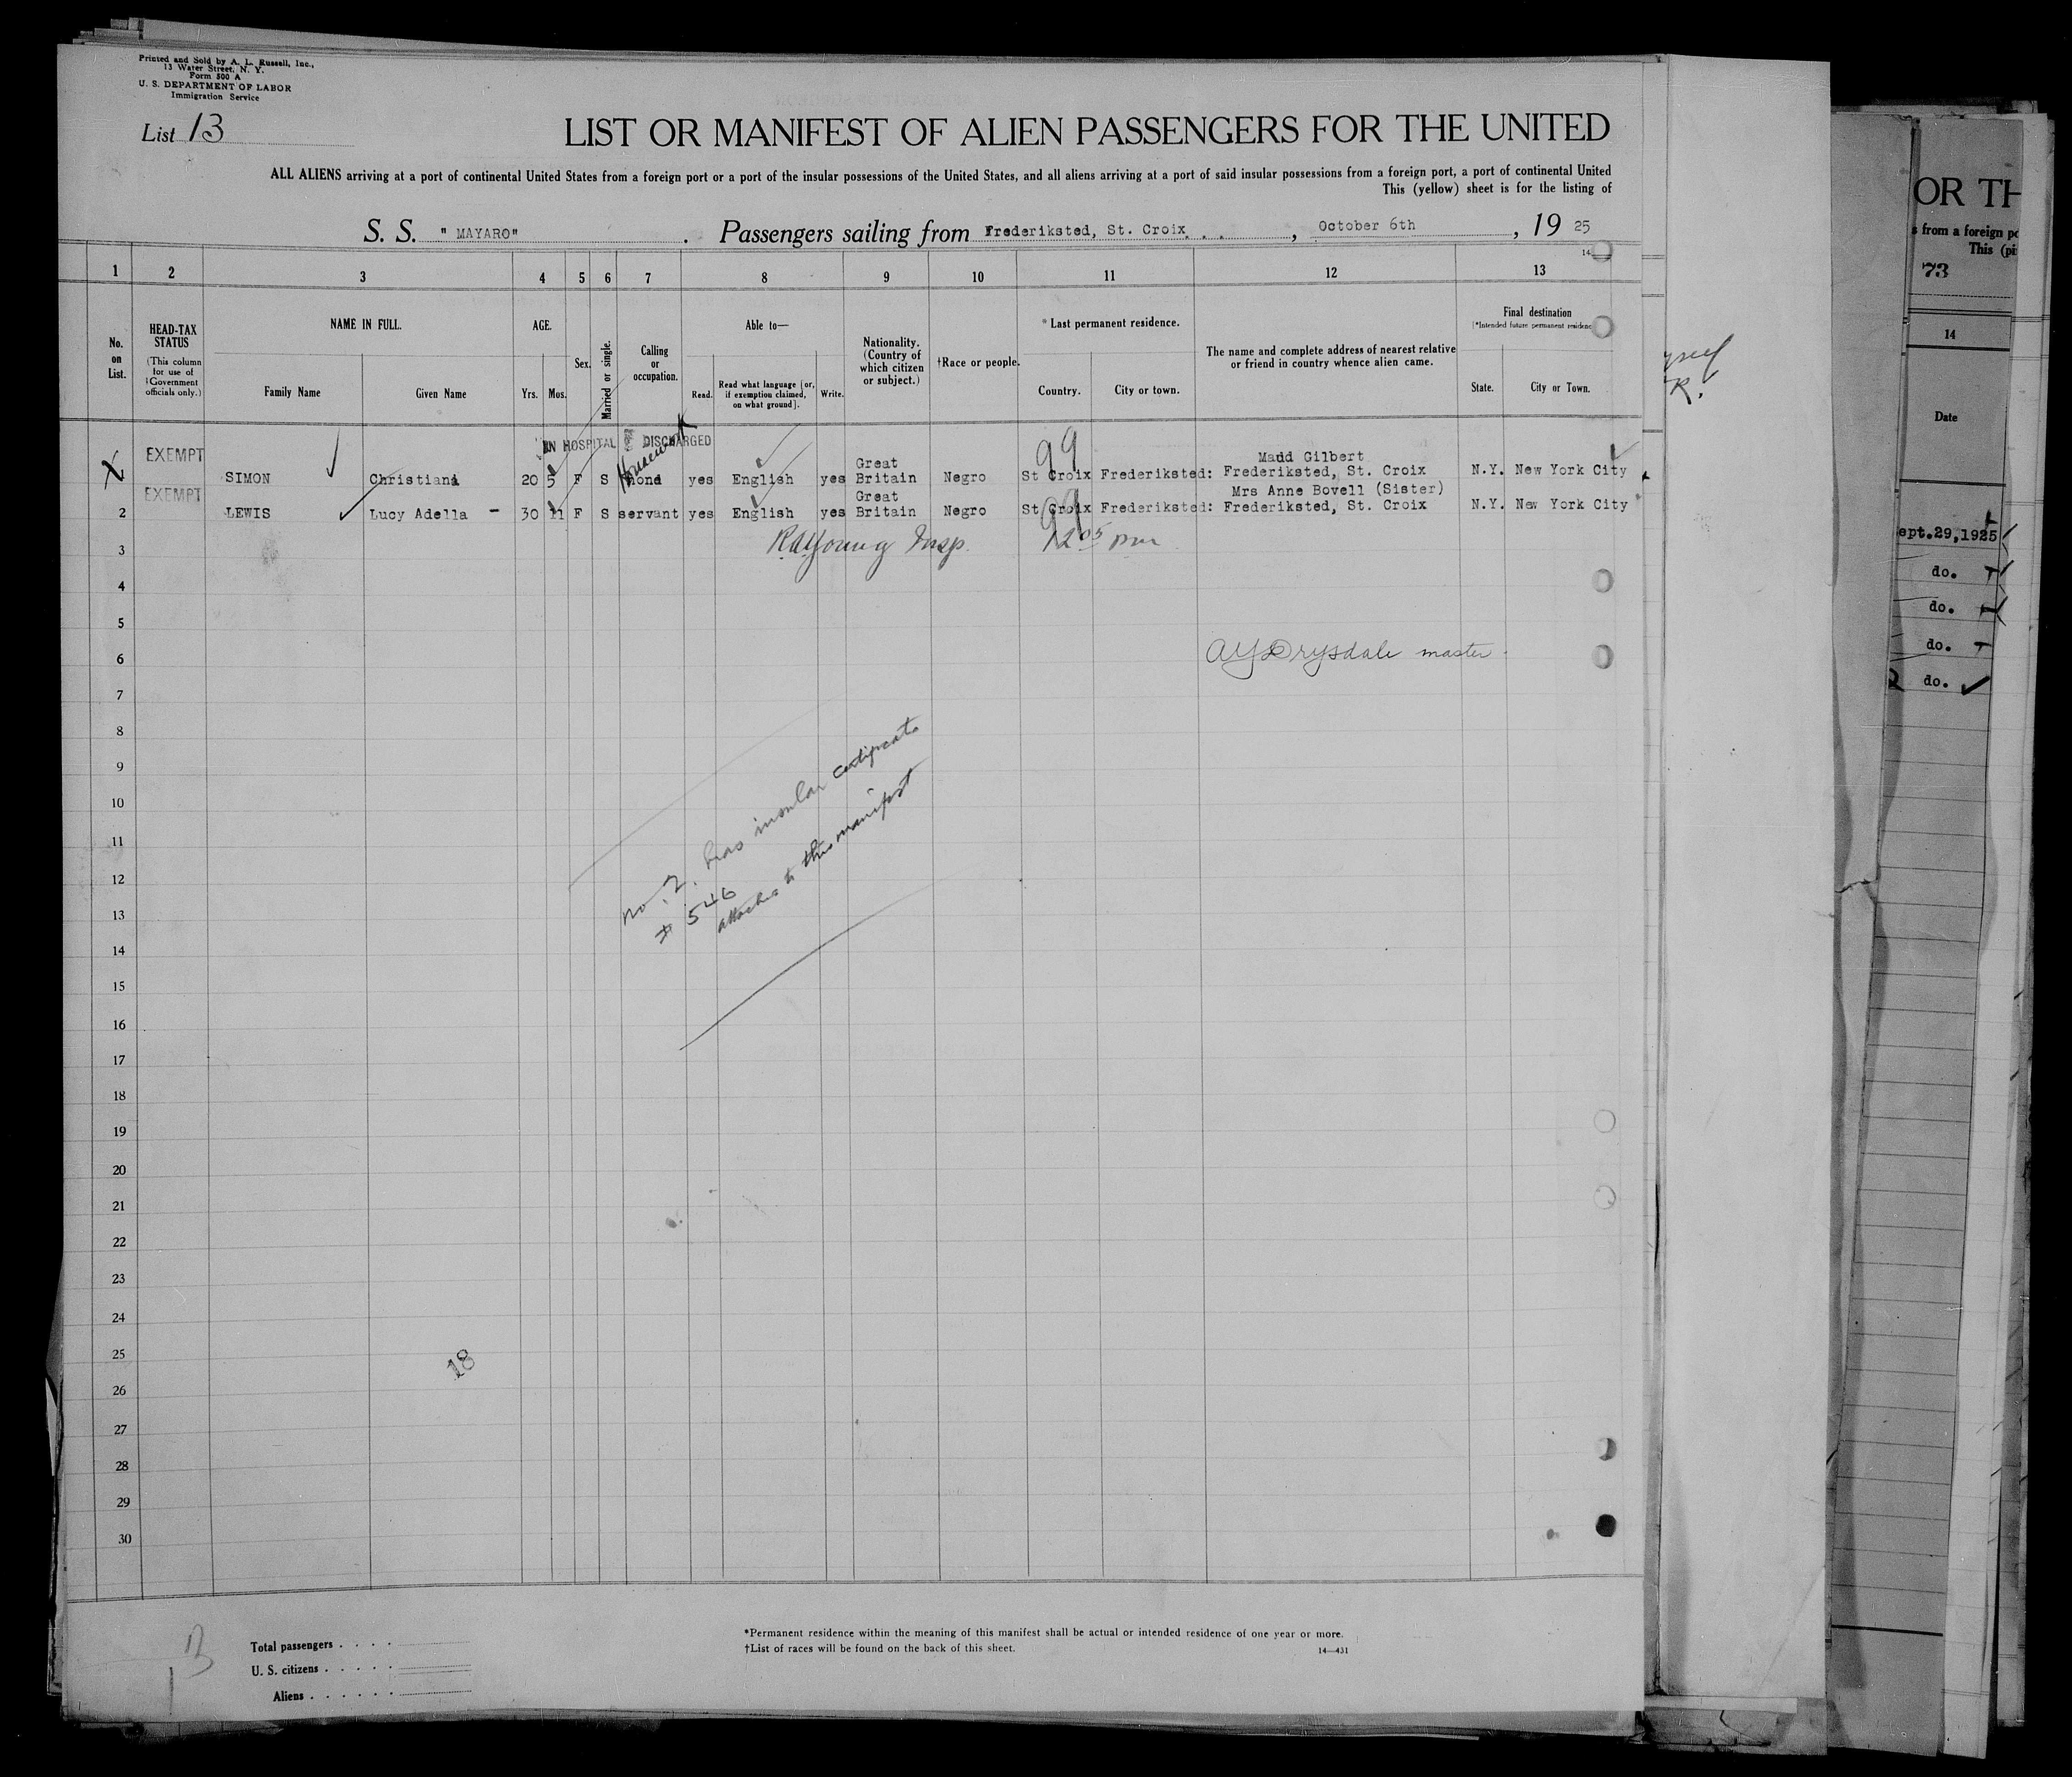 Printed and Sold by A. L. Russell, Inc.,
13 Water Street, N. Y.
Form 500 A
U. S. DEPARTMENT OF LABOR
Immigration Service
List 13
LIST OR MANIFEST OF ALIEN PASSENGERS FOR THE UNITED
ALL ALIENS arriving at a port of continental United States from a foreign port or a port of the insular possessions of the United States, and all aliens arriving at a port of said insular possessions from a foreign port, a port of continental United
This (yellow) sheet is for the listing of
S. S. " MAYARO". Passengers sailing from Frederiksted, St. Croix, October 6th, 19 25
1 2 3 4 5 6 7 8 9 10 11 12 13
No. on List.
HEAD-TAX STATUS
(This column for use of Government officials only.)
NAME IN FULL.
Family Name Given Name
AGE.
Yrs. Mos.
Sex.
Married or single.
Calling or occupation.
Able to—
Read. Read what language [or, if exemption claimed, on what ground]. Write.
Nationality. (Country of which citizen or subject.)
†Race or people.
*Last permanent residence.
Country. City or town.
The name and complete address of nearest relative or friend in country whence alien came.
Final destination
(*Intended future permanent residence
State. City or Town.
IN HOSPITAL DISCHARGED
EXEMPT
Housework
99
Madd Gilbert
SIMON Christiani 20 5 F S none yes English yes Great Britain Negro St Croix Frederiksted: Frederiksted, St. Croix N.Y. New York City
EXEMPT
99
Mrs Anne Bovell (Sister)
2 LEWIS Lucy Adella - 30 11 F S servant yes English yes Great Britain Negro St Croix Frederiksted: Frederiksted, St. Croix N.Y. New York City
3 RAYoung Insp. 12 05 pm
4
5
6 AYDrysdale master
7
8
9
10
11
12
13
14
15
16
17
18
19
20
21
22
23
24
25
26
27
28
29
30
No. 2. has insular certificate
# 546
attached to this manifest
18
13
Total passengers
U. S. citizens
Aliens
*Permanent residence within the meaning of this manifest shall be actual or intended residence of one year or more.
†List of races will be found on the back of this sheet.
14—431
R.
OR TH
s from a foreign po
This (pi
73
14
Date
ept.29,1925
do.
do.
do.
do.